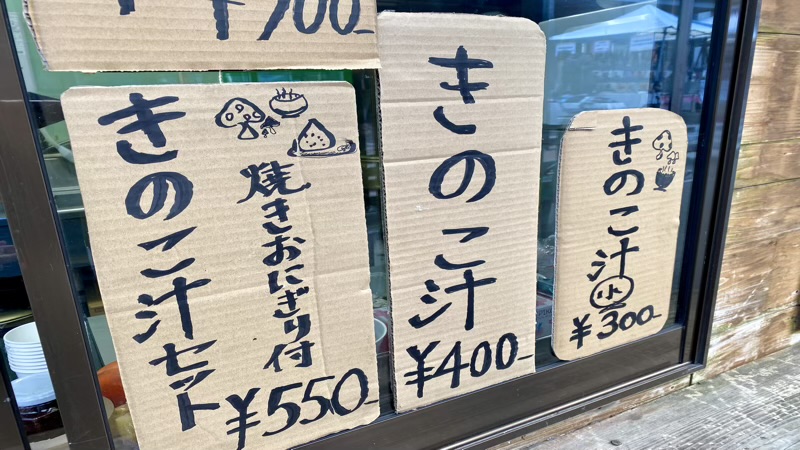 ¥700-
きのこ汁セット
焼きおにぎり付
¥550-
きのこ汁
¥400-
きのこ汁
小
¥300-